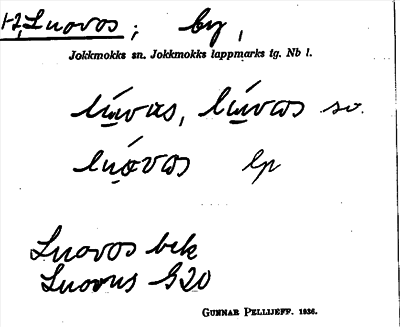 1-2, Luovos; by,
Jokkmokks sn. Jokkmokks lappmarks tg. Nb l.
lúvas, lúvås sv.
lúǫvås lp
Luovos bek
Luovus G20
GUNNAR PELLIJEFF. 1936.